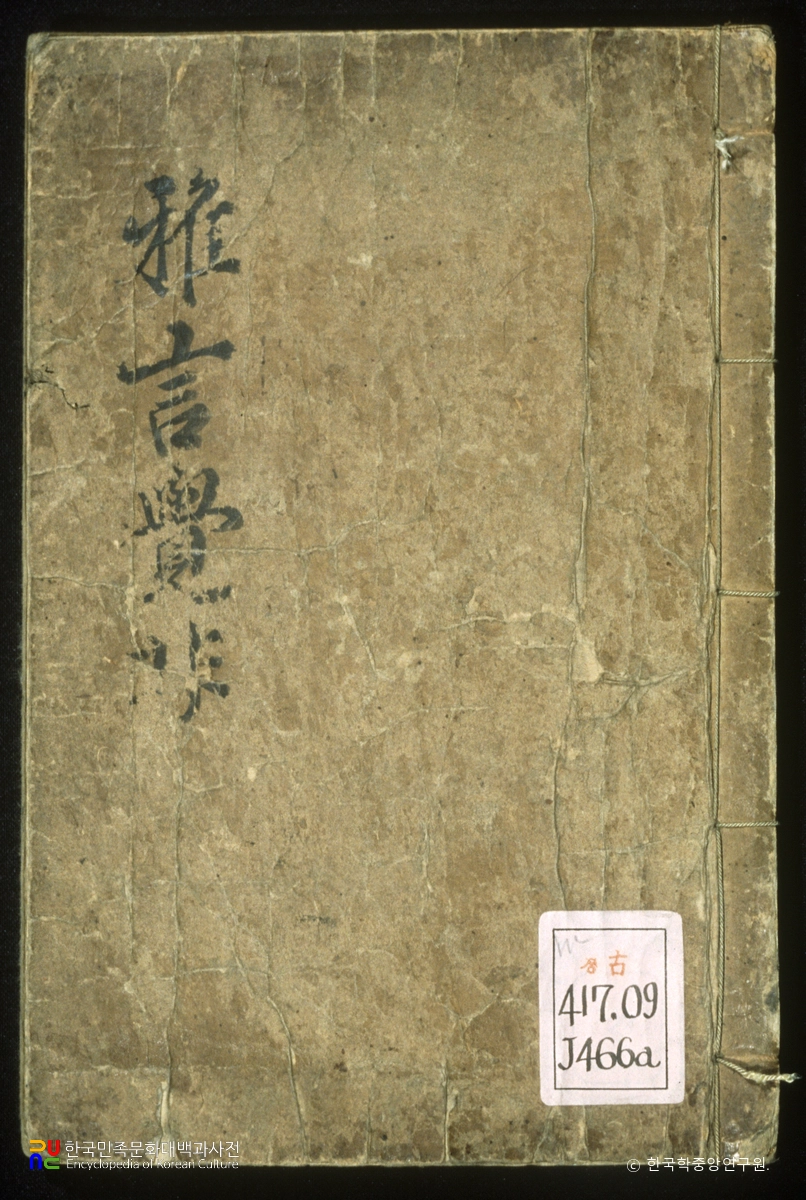 雅言覺非
古
417.09
J466a
한국민족문화대백과사전
Encyclopedia of Korean Culture
© 한국학중앙연구원